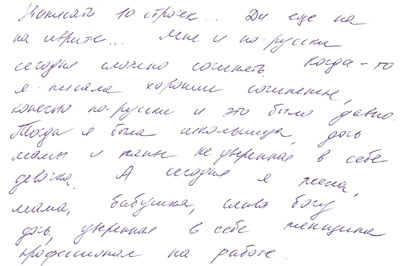 Написать 10 строчек... Да еще на
на иврите... Мне и по-русски
сегодня сложно сочинять. Когда-то
я писала хорошие сочинения,
конечно по-русски и это было давно.
Тогда я была школьница, дочь
мамы и папы не уверенная в себе
девочка. А сегодня я жена,
мама, бабушка, слава богу
дочь, уверенная в себе женщина
профессионал на работе.